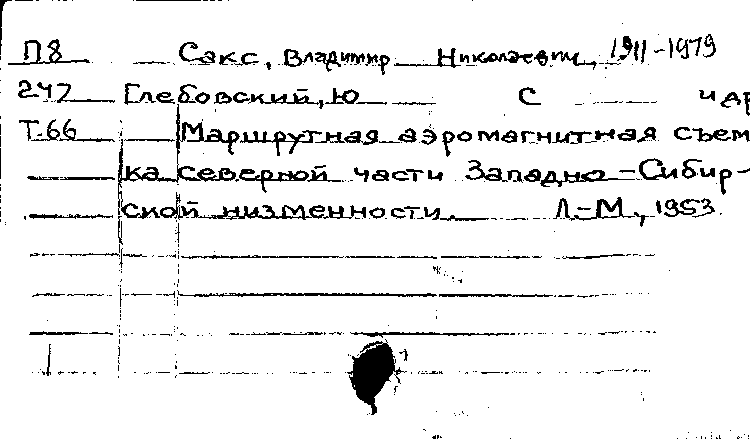 П8 Сакс, Владимир Николаевич, 1911-1979
247 Глебовский, Ю С и др
Т.66 Маршрутная аэромагнитная съем
ка северной части Западно-Сибир-
ской низменности. Л.-М., 1953